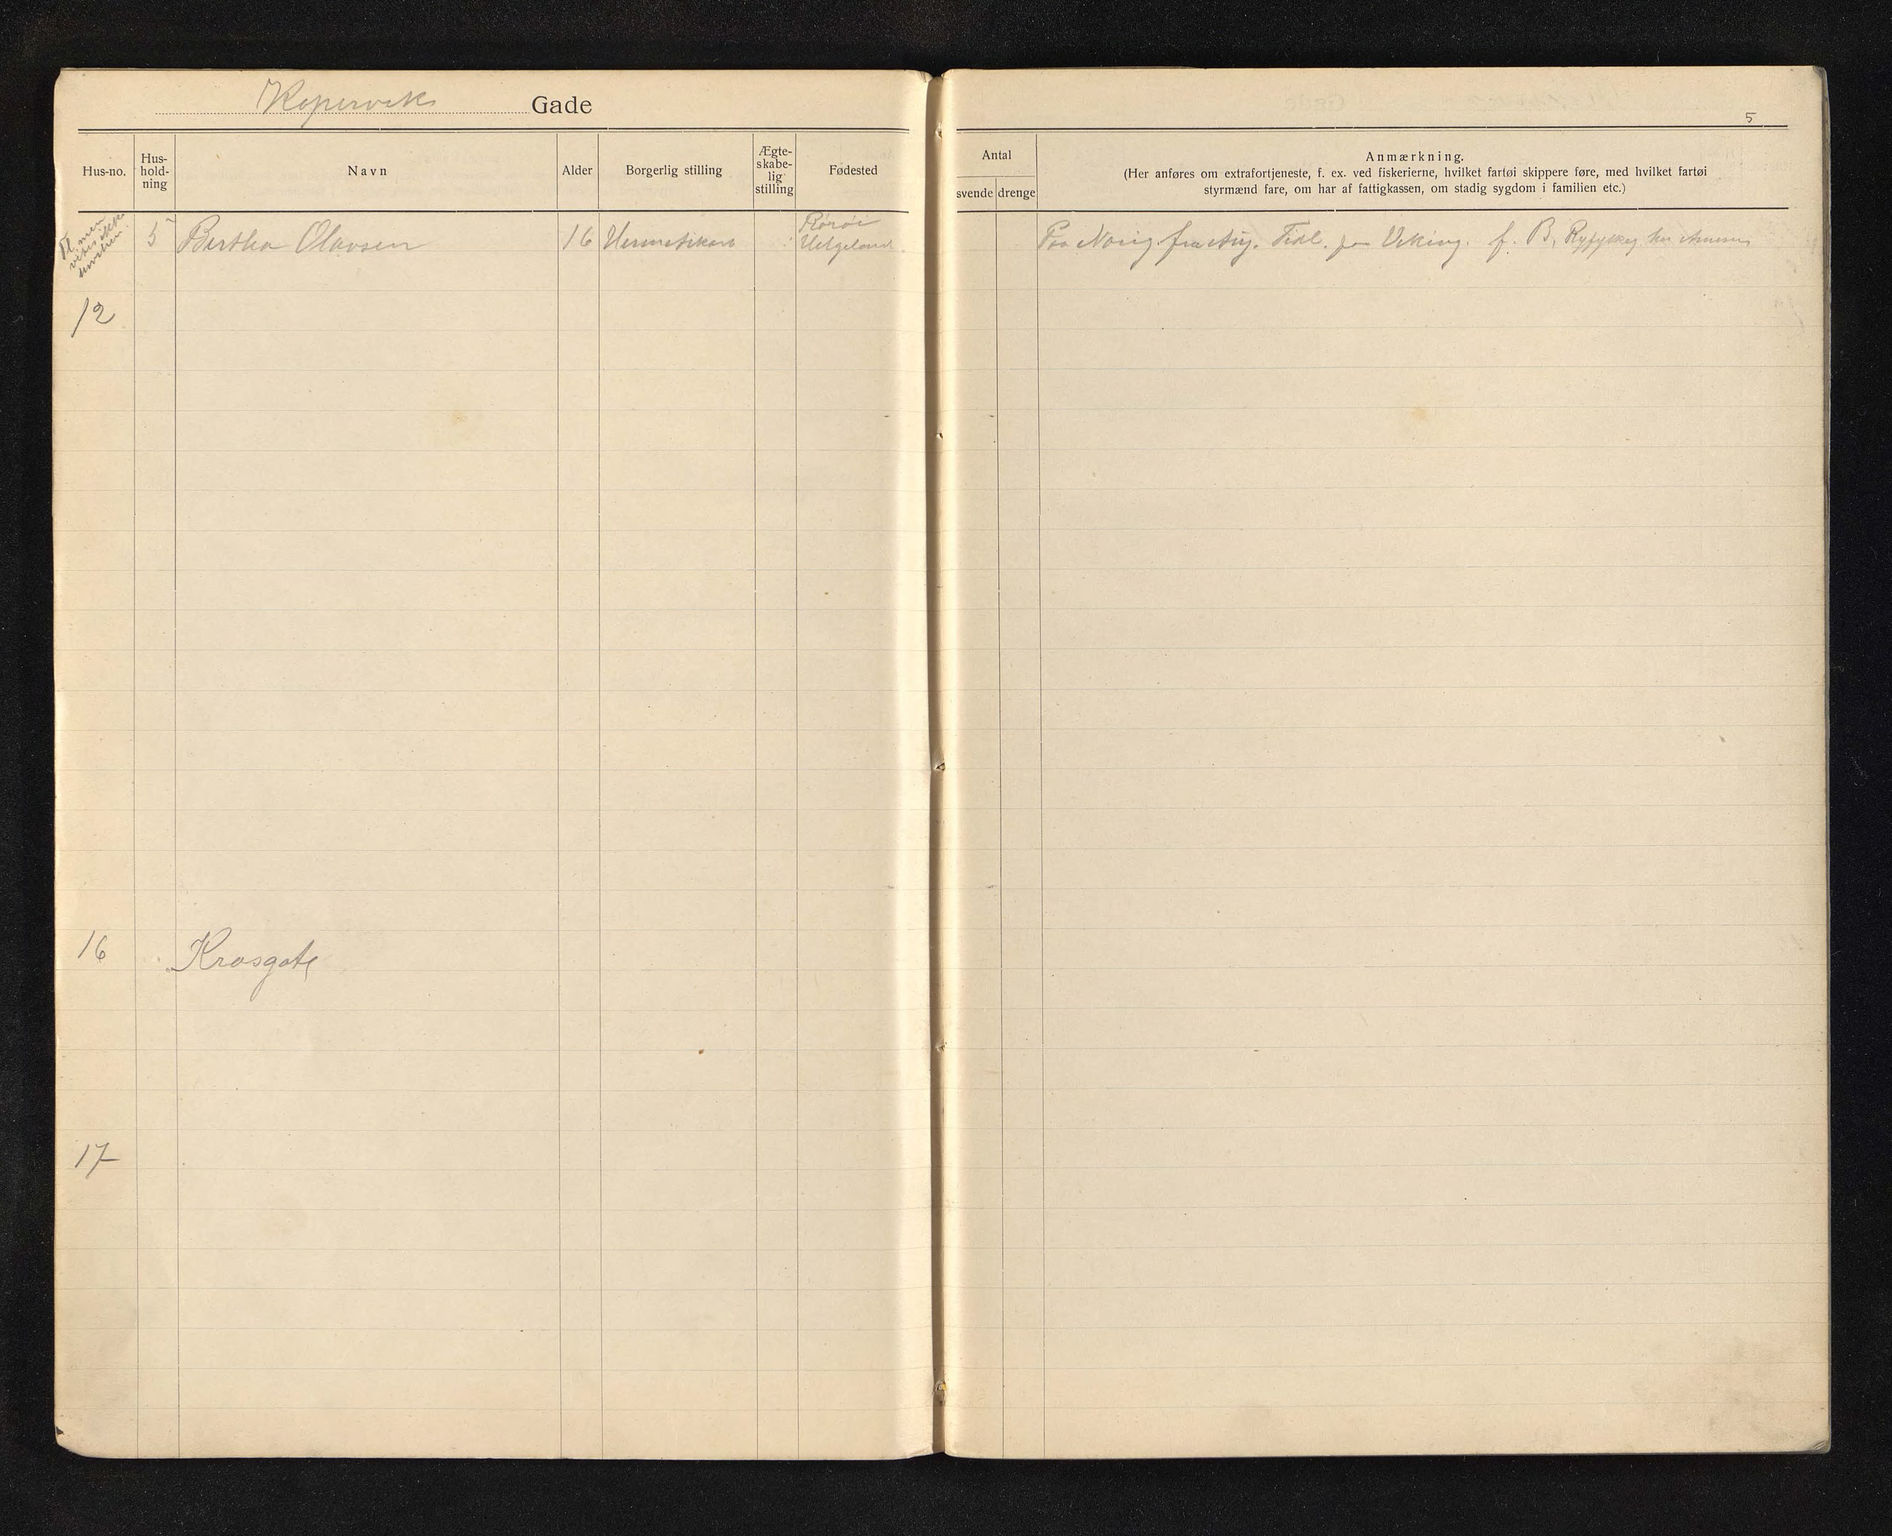 Koperviks Gade
5
Hus-no.
Hus-
hold-
ning
Navn
Alder
Borgerlig stilling
Ægte-
skabe-
lig
stilling
Fødested
Antal
svende drenge
Anmærkning.
(Her anføres om extrafortjeneste, f. ex. ved fiskerierne, hvilket fartøi skippere føre, med hvilket fartøi
styrmænd fare, om har af fattigkassen, om stadig sygdom i familien etc.)
5 Bertha Olavsen 16 Helgeland
Tidl. paa Viking. f. B.
12
16 Krosgate
17